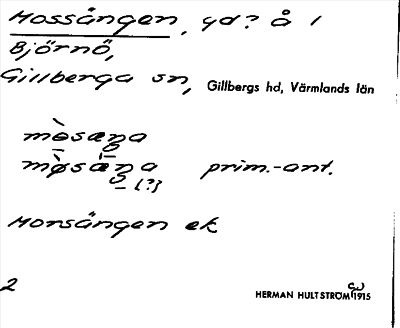 Mossången, gd? å 1
Björnö,
Gillberga sn, Gillbergs hd, Värmlands län
mòsæŋa
mø̀sæŋa prim.-ant.
(?)
Monsången ek
2 HERMAN HULTSTRÖM 1915